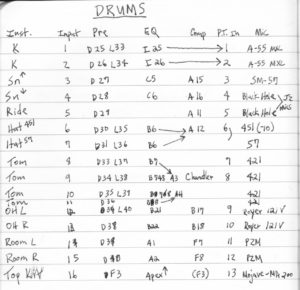 DRUMS
Inst. Input Pre EQ Comp PT. In Mic
K 1 D25 L33 I25 → 1 A-55 MXL
K 2 D26 L34 I26 → 2 A-55 MXL
Sn↑ 3 D27 C5 A15 3 SM-57
Sn↓ 4 D28 C6 A16 4 Black Hole
Ride 5 D29 A11 5 Black Hole JZ Mics
Hat 451 6 D30 L35 B6 → A12 6 451 (-10)
Hat 57 7 D31 L36 B6 57
Tom 8 D33 L37 B7 7 421
Tom 9 D34 L38 A3 Chandler 8 421
Tom 10 D35 L39 A4 421
Tom 11 D36 421
OH L L40 B21 B17 9 Royer 121V
OH R D38 B22 B18 10 Royer 121V
Room L D38 A1 F7 11 PZM
Room R 15 A2 F8 12 PZM
Top 16 F3 Apex↑ (F3) 13 Mojave-MA 200